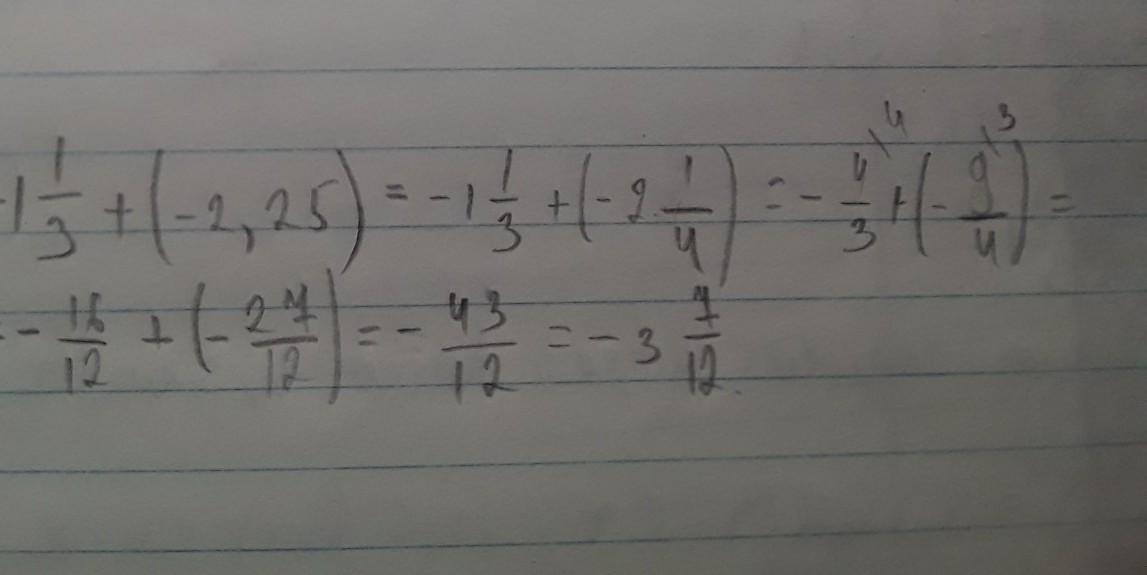 -1 1/3 + (-2,25) = -1 1/3 + (-2 1/4) = - 4/3 \4 + (- 9/4 \3) =
- 16/12 + (- 27/12) = - 43/12 = -3 7/12.